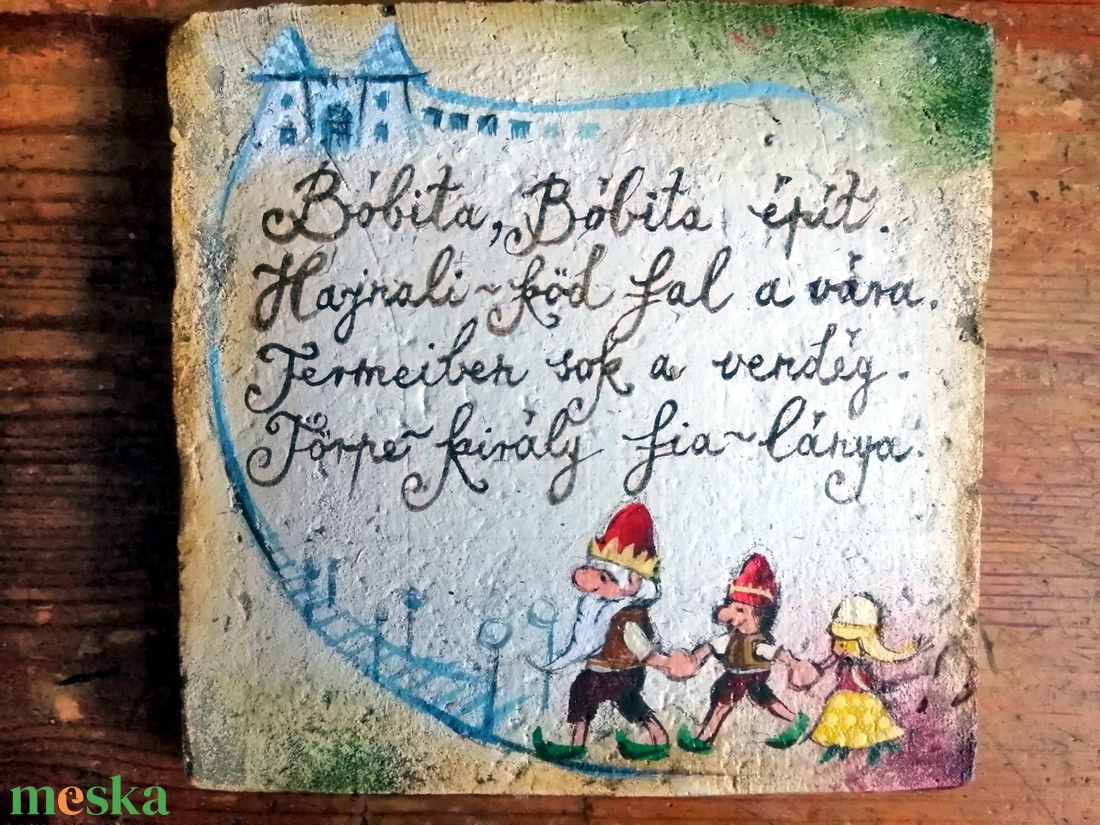 Bóbita, Bóbita épít.
Hajnali~köd fal a vára.
Termeiben sok a vendég.
Törpe~király fia~lánya.
meska